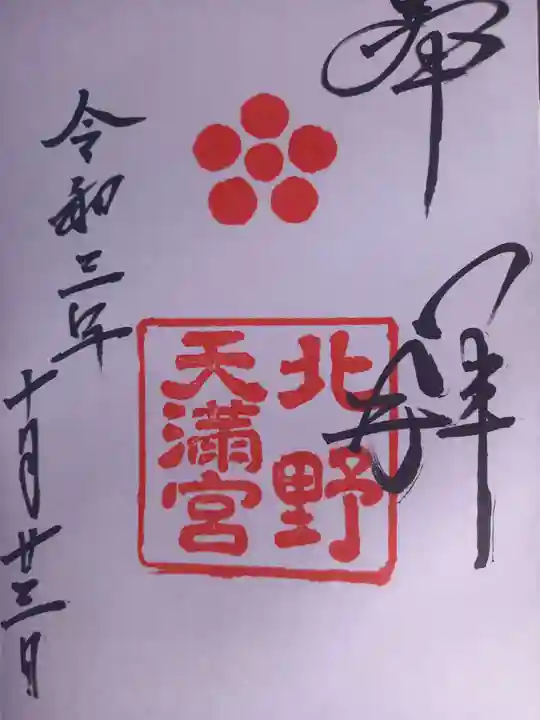 奉拝
北野
天満宮
令和三年
十月廿三日